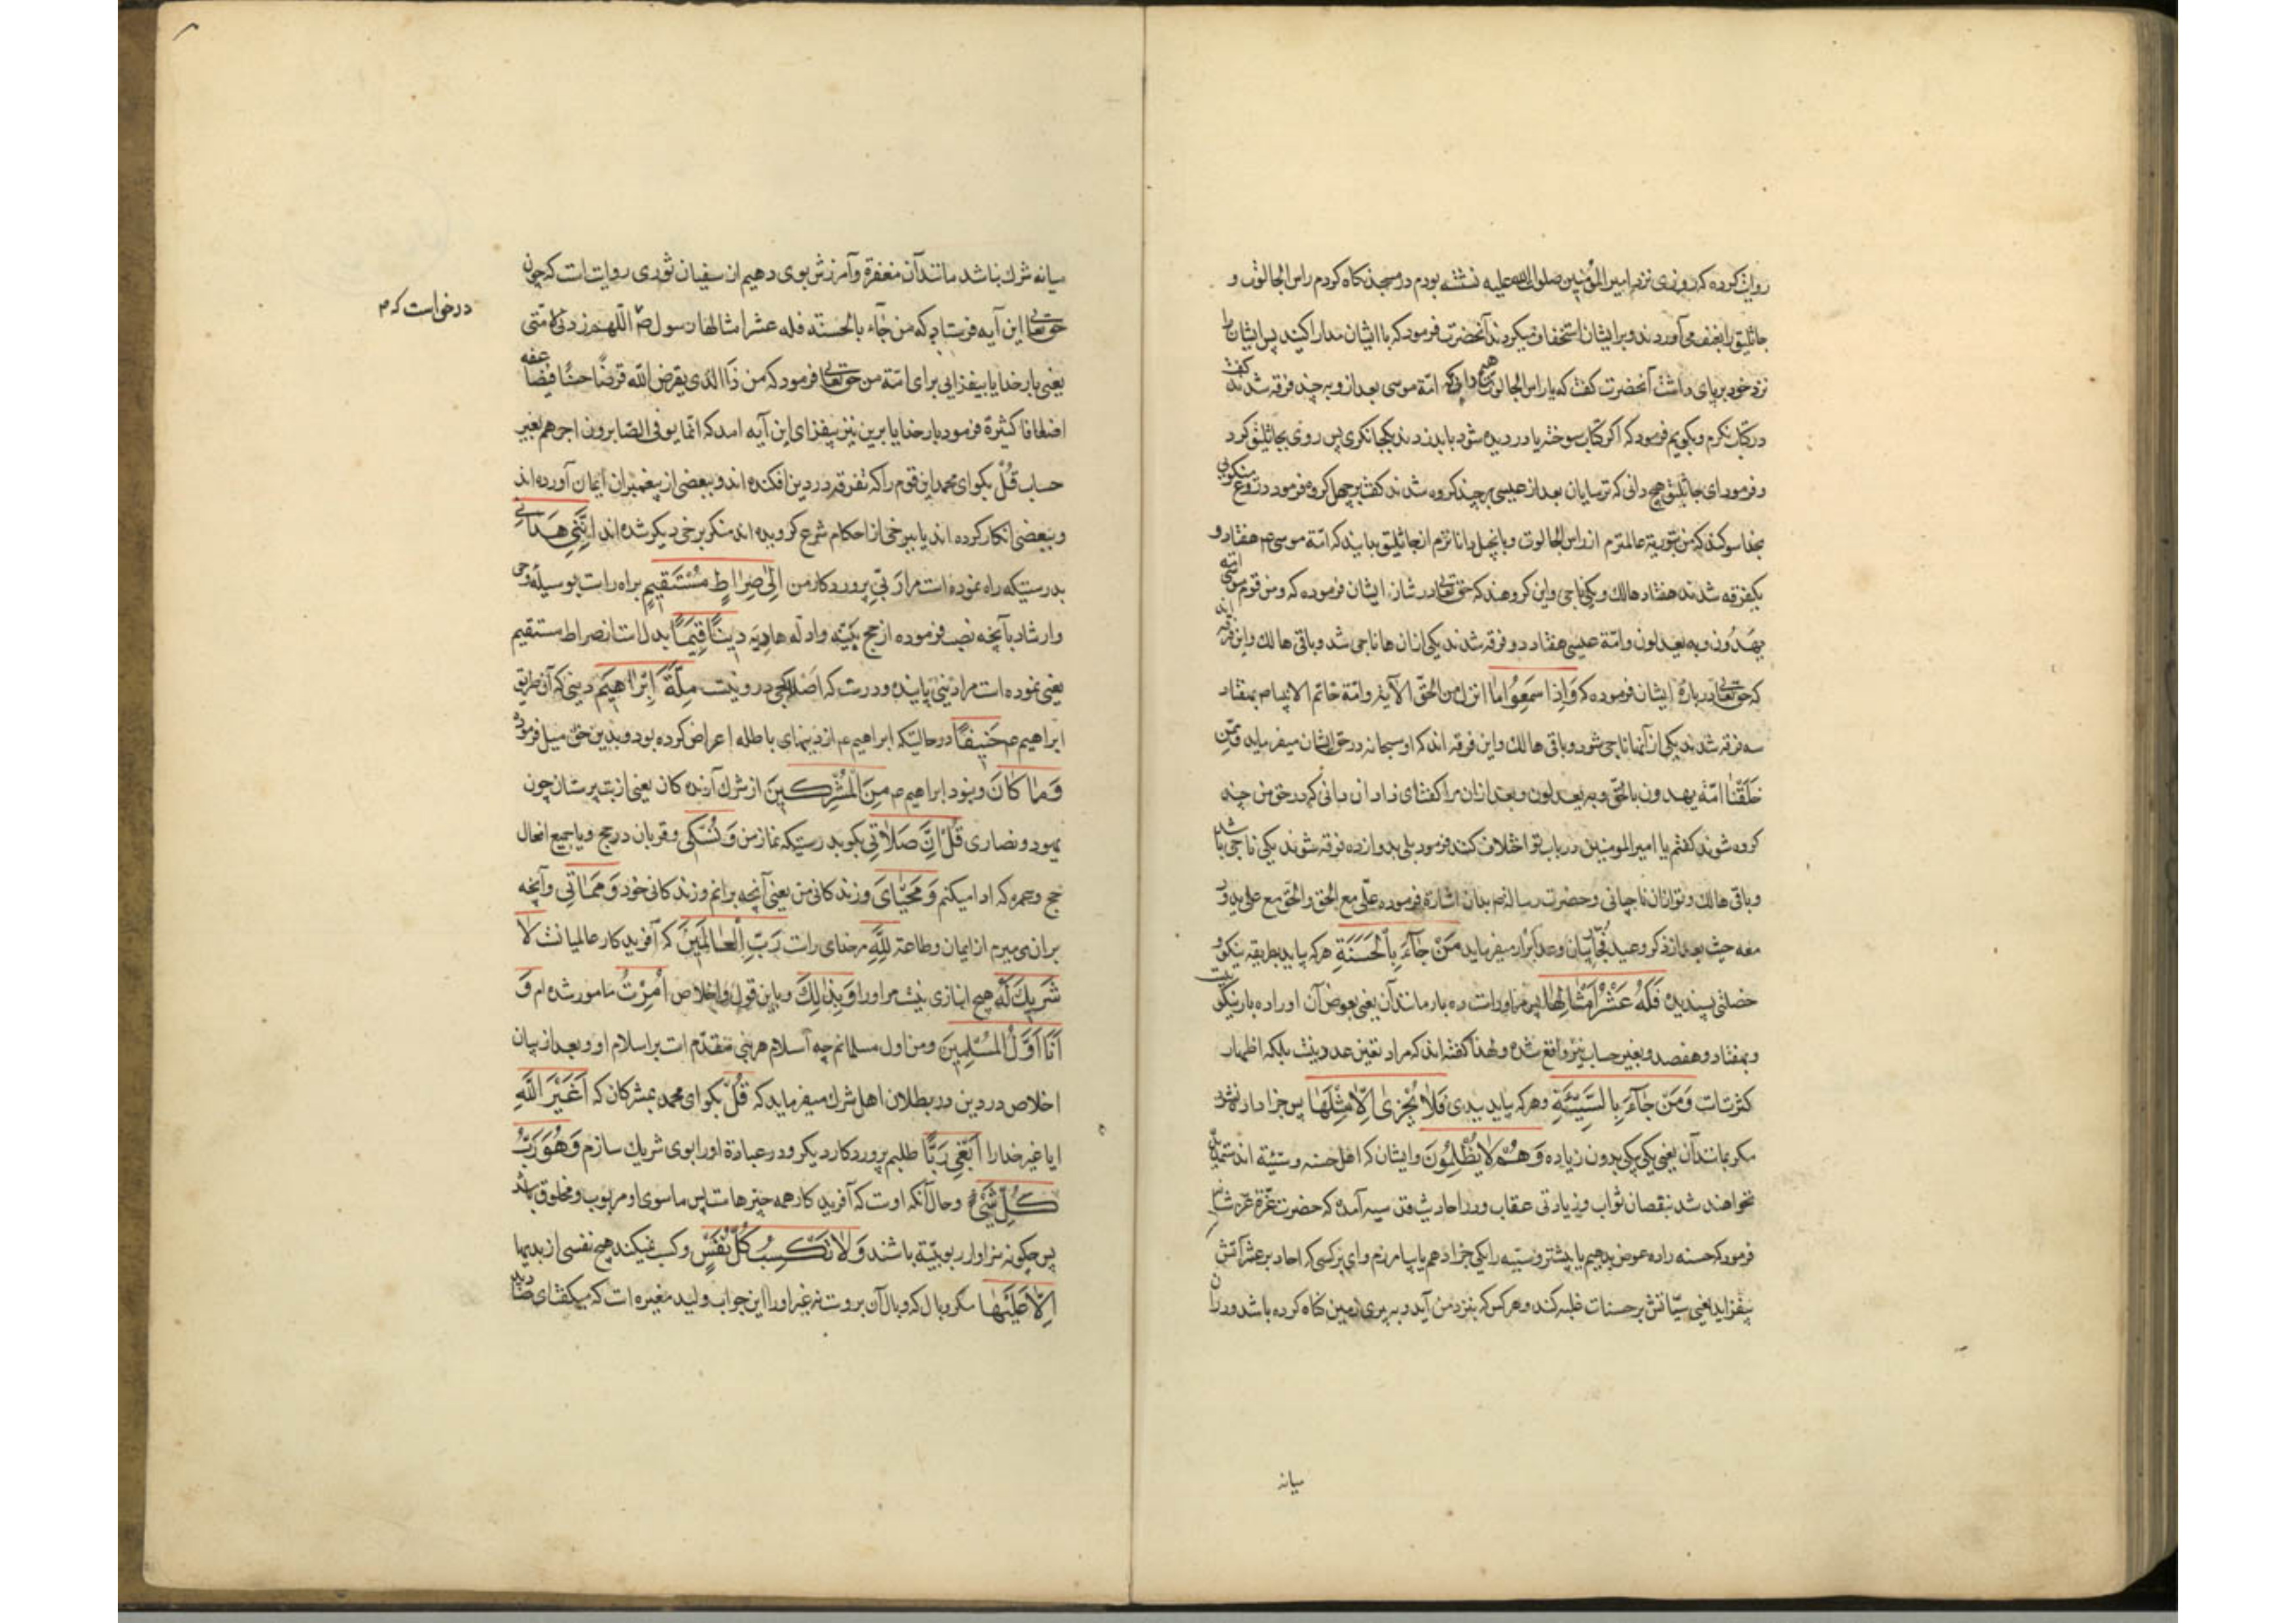 روایت کرده که روزی نزد امیرالمؤمنین صلوات الله علیه نشسته بودم در مسجد نکاه کردم راس الجالوت و
جاثلیق را بعنف می آوردند و بر ایشان استخفاف میکردند آنحضرت فرمود که با ایشان مدارا کنید پس ایشان را
نزد خود بر پای داشت آنحضرت گفت که یا راس الجالوت هیچ دانی که امّة موسی بعد از وی بر چند فرقه شدند گفت
در کتاب نکرم و بکویم فرمود که اکر کتاب سوخته یا دزدیده شود باید زدند بکجا نکری پس روی بجاثلیق کرد
و فرمود ای جاثلیق هیچ دانی که ترسایان بعد از عیسی بر چند کروه شدند کفت بر چهل کروه فرمود دروغ میکویی
بخدا سوکند که من بتوریة عالمترم از راس الجالوت و بانجیل داناترم از جاثلیق بدانید که امّة موسی م هفتاد و
یکفرقه شدند هفتاد هالک و یکی ناجی و این کروهند که حق تعالی در شان ایشان فرموده که و من قوم موسی امّة
یهدون و به یعدلون و امّة عیسی هفتاد و دو فرقه شدند یکی از آن ها ناجی شد و باقی هالک و این فرقه اند
که حق تعالی در باره ایشان فرموده که وَاِذا سَمِعُوا ما انزل من الحق الآیة و امّة خاتم الانبیا م بهفتاد
سه فرقه شدند یکی از آنها ناجی شود و باقی هالک و این فرقه اند که او سبحانه در حق ایشان میفرماید و ممّن
خَلَقْنا امّة یهدون بالحقّ و به یعدلون و بعد از آن مرا کفت ای زاذان دانی که در حق من چند
کروه شوند کفتم یا امیر المومنین در باب تو اختلاف کنند فرمود بلی بدوازده فرقه شوند یکی ناجی باشد
و باقی هالک و تو از آن ناجیانی و حضرت رسالة م بدان اشارة فرموده علی مع الحق و الحق مع علی یدور
معه حیث بعد از ذکر وعید فجّار بیان وعد ابرار میفرماید مَنْ جٰآءَ بِالْحَسَنَةِ هرکه بیاید بطریقه نیکو و
خصلتی پسندیده فَلَهُ عَشْرُ اَمْثٰالِهٰا پس مر اوراست ده بار مانند آن یعنی بعوض آن او را ده بار نیکویست
و بهفتاد و هفصد و بغیر حساب نیز واقع شده و لهذا کفته اند که مراد تعیین عدد نیست بلکه اظهار
کثرتست وَمَنْ جٰآءَ بِالسَّیِّئَةِ و هرکه بیاید ببدی فَلاٰ یُجْزیٰ اِلّاٰ مِثْلَهٰا پس جزا داده نشود
مکر بمانند آن یعنی یکی بیکی بدون زیاده وَهُمْ لاٰ یُظْلَمُونَ و ایشان که اهل حسنه و سیّئه اند ستمدیده
نخواهند شد بنقصان ثواب و زیادتی عقاب و در احادیث قدسیه آمده که حضرت عزّة عزّ شانه
فرمود که حسنه را ده عوض بدهیم یا بیشتر و سیّئه را یکی جزا دهم یا بیامرزم وای بر کسی که احاد بر عشراتش
بیفزاید یعنی سیّاتش بر حسنات غلبه کند و هر کس که بنزد من آید و به پری زمین کناه کرده باشد و در آن
میانه
میانه شرک نباشد مانند آن مغفرة و آمرزش بوی دهیم از سفیان ثوری روایتست که چون
حق تعالی این آیه فرستاد که من جاء بالحسنه فله عشر امثالها رسول م اللّهم زد لامّتی
درخواست که م
یعنی بار خدایا بیفزایی برای امّة من حق تعالی فرمود که من ذا الذی یقرض الله قرضًا حسنًا فیضاعفه
اضعافا کثیرة فرمود بار خدایا برین نیز بیفزای این آیه امد که انّما یوفی الصّابرون اجرهم بغیر
حساب قُلْ بکو ای محمد این قوم را که تفرقه در دین افکنده اند و ببعضی از پیغمبران ایمان آورده اند
و ببعضی انکار کرده اند یا ببرخی از احکام شرع کرویده اند منکر برخی دیکر شده اند اِنَّنی هَدٰانی
بدرستیکه راه نموده است مرا رَبّی پروردکار من اِلیٰ صِرٰاطٍ مُسْتَقیمٍ براه راست بوسیله وحی
و ارشاد بآنچه نصب فرموده از حجج بیّنه و ادله هادیه دینًا قِیَمًا بدل است از صراط مستقیم
یعنی نموده است مرا دینی پاینده و درست که اصلا کجی درو نیست مِلَّةَ اِبْرٰاهیمَ دینی که آن طریق
ابراهیم م حَنیفًا در حالتیکه ابراهیم م از دینهای باطله اعراض کرده بود و بدین حق میل فرموده
وَمٰا کٰانَ و نبود ابراهیم م مِنَ الْمُشْرِکینَ از شرک آرنده کان یعنی از بت پرستان چون
یهود و نصاری قُلْ اِنَّ صَلاٰتی بکو بدرستیکه نماز من وَنُسُکی و قربان در حج و یا جمیع افعال
حج و عمره که ادا میکنم وَمَحْیٰایَ و زندکانی من یعنی آنچه برانم و زندکانی خود وَمَمٰاتی و آنچه
بران می میرم از ایمان و طاعة لِلّٰهِ مر خدای راست رَبِّ الْعٰالَمینَ که آفریدکار عالمیانست لاٰ
شَریکَ لَهُ هیچ انبازی نیست مر او را وَبِذٰلِکَ و باین قول و اخلاص اُمِرْتُ مامور شده ام وَ
اَنَا اَوَّلُ الْمُسْلِمینَ و من اول مسلمانم چه اسلام هر نبی مقدّم است بر اسلام او و بعد از بیان
اخلاص در دین در بطلان اهل شرک میفرماید که قُلْ بکو ای محمد بمشرکان که اَغَیْرَ اللّٰهِ
ایا غیر خدا را اَبْغی رَبًّا طلبم پروردکار دیکر و در عبادة او را بوی شریک سازم وَهُوَ رَبُّ
کُلِّ شَیْءٍ و حال آنکه اوست که آفریدکار همه چیزهاست پس ماسوی او مربوب و مخلوق باشد
پس چکونه سزاوار ربوبیّة باشند وَلاٰ تَکْسِبُ کُلُّ نَفْسٍ و کسب نمیکند هیچ نفسی از بدیها
اِلّاٰ عَلَیْهٰا مکر وبال که وبال آن بروست نه غیر او را این جواب ولید مغیره است که میکفت ای